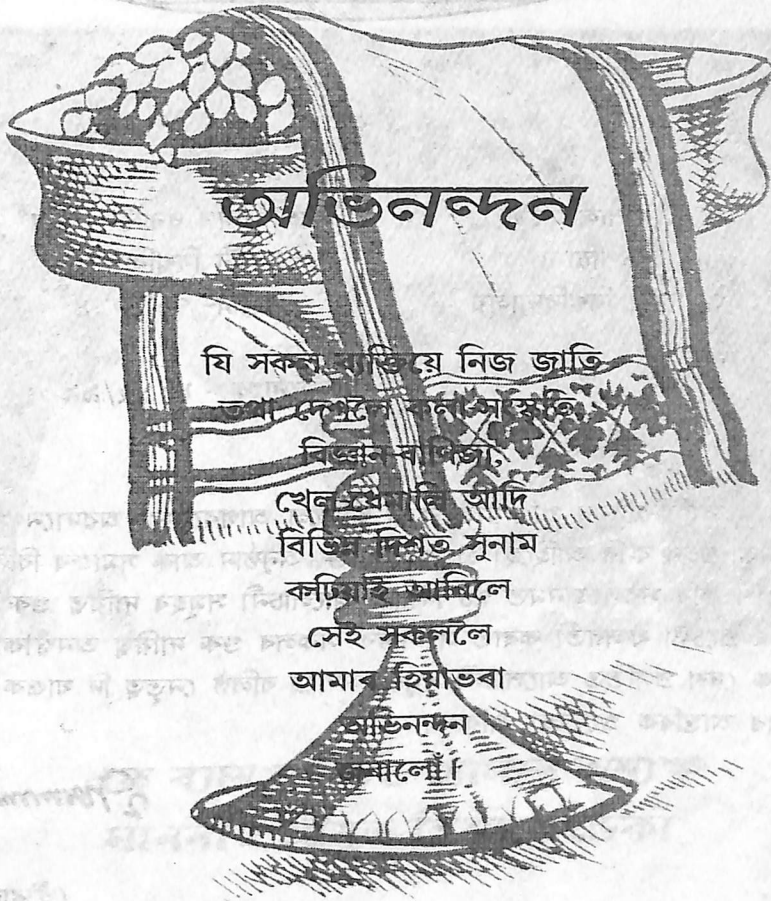 অভিনন্দন
যি সকল ব্যক্তিয়ে নিজ জাতি
তথা দেশলৈ কলা-সংস্কৃতি,
বিজ্ঞান-বাণিজ্য,
খেল-ধেমালি আদি
বিভিন্ন দিশত সুনাম
কঢ়িয়াই আনিলে
সেই সকললৈ
আমাৰ হিয়াভৰা
অভিনন্দন
জনালোঁ।